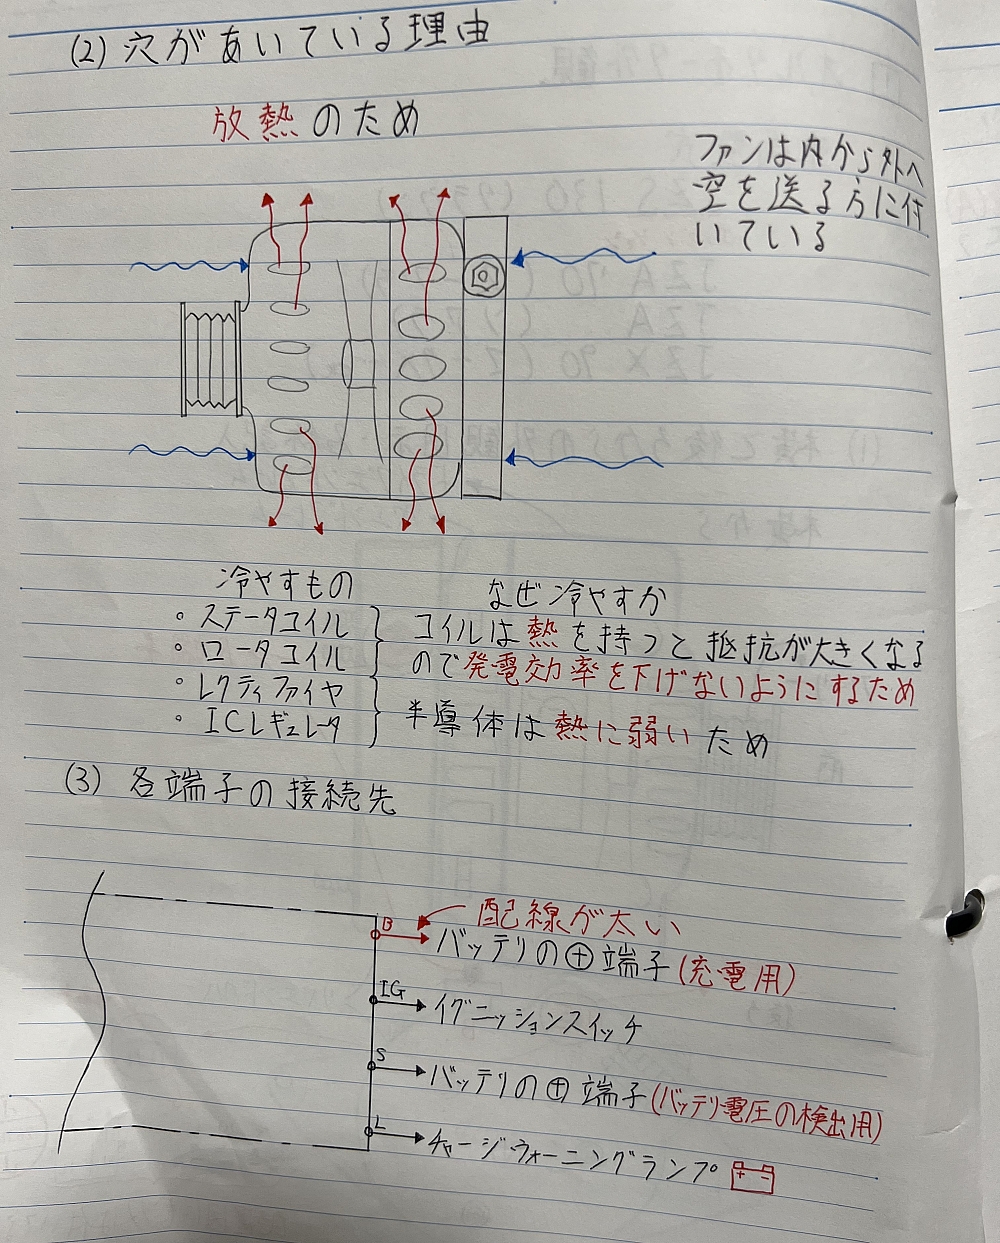 (2) 穴があいている理由
放熱のため
ファンは内から外へ
空を送る方に付
いている
冷やすもの
・ステータコイル
・ロータコイル
・レクティファイヤ
・ICレギュレータ
なぜ冷やすか
コイルは熱を持つと抵抗が大きくなる
ので発電効率を下げないようにするため
半導体は熱に弱いため
(3) 各端子の接続先
配線が太い
B バッテリの⊕端子(充電用)
IG イグニッションスイッチ
S バッテリの⊕端子(バッテリ電圧の検出用)
L チャージウォーニングランプ
+ -